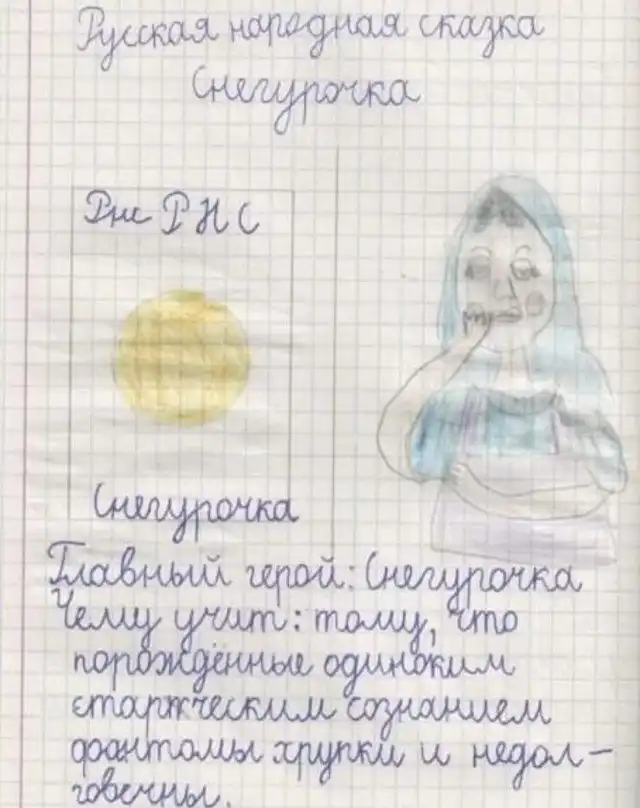 Русская народная сказка
Снегурочка
Рнс РНС
Снегурочка
Главный герой: Снегурочка
Чему учит: тому, что
порождённые одиноким
старческим сознанием
фантомы хрупки и недол-
говечны.